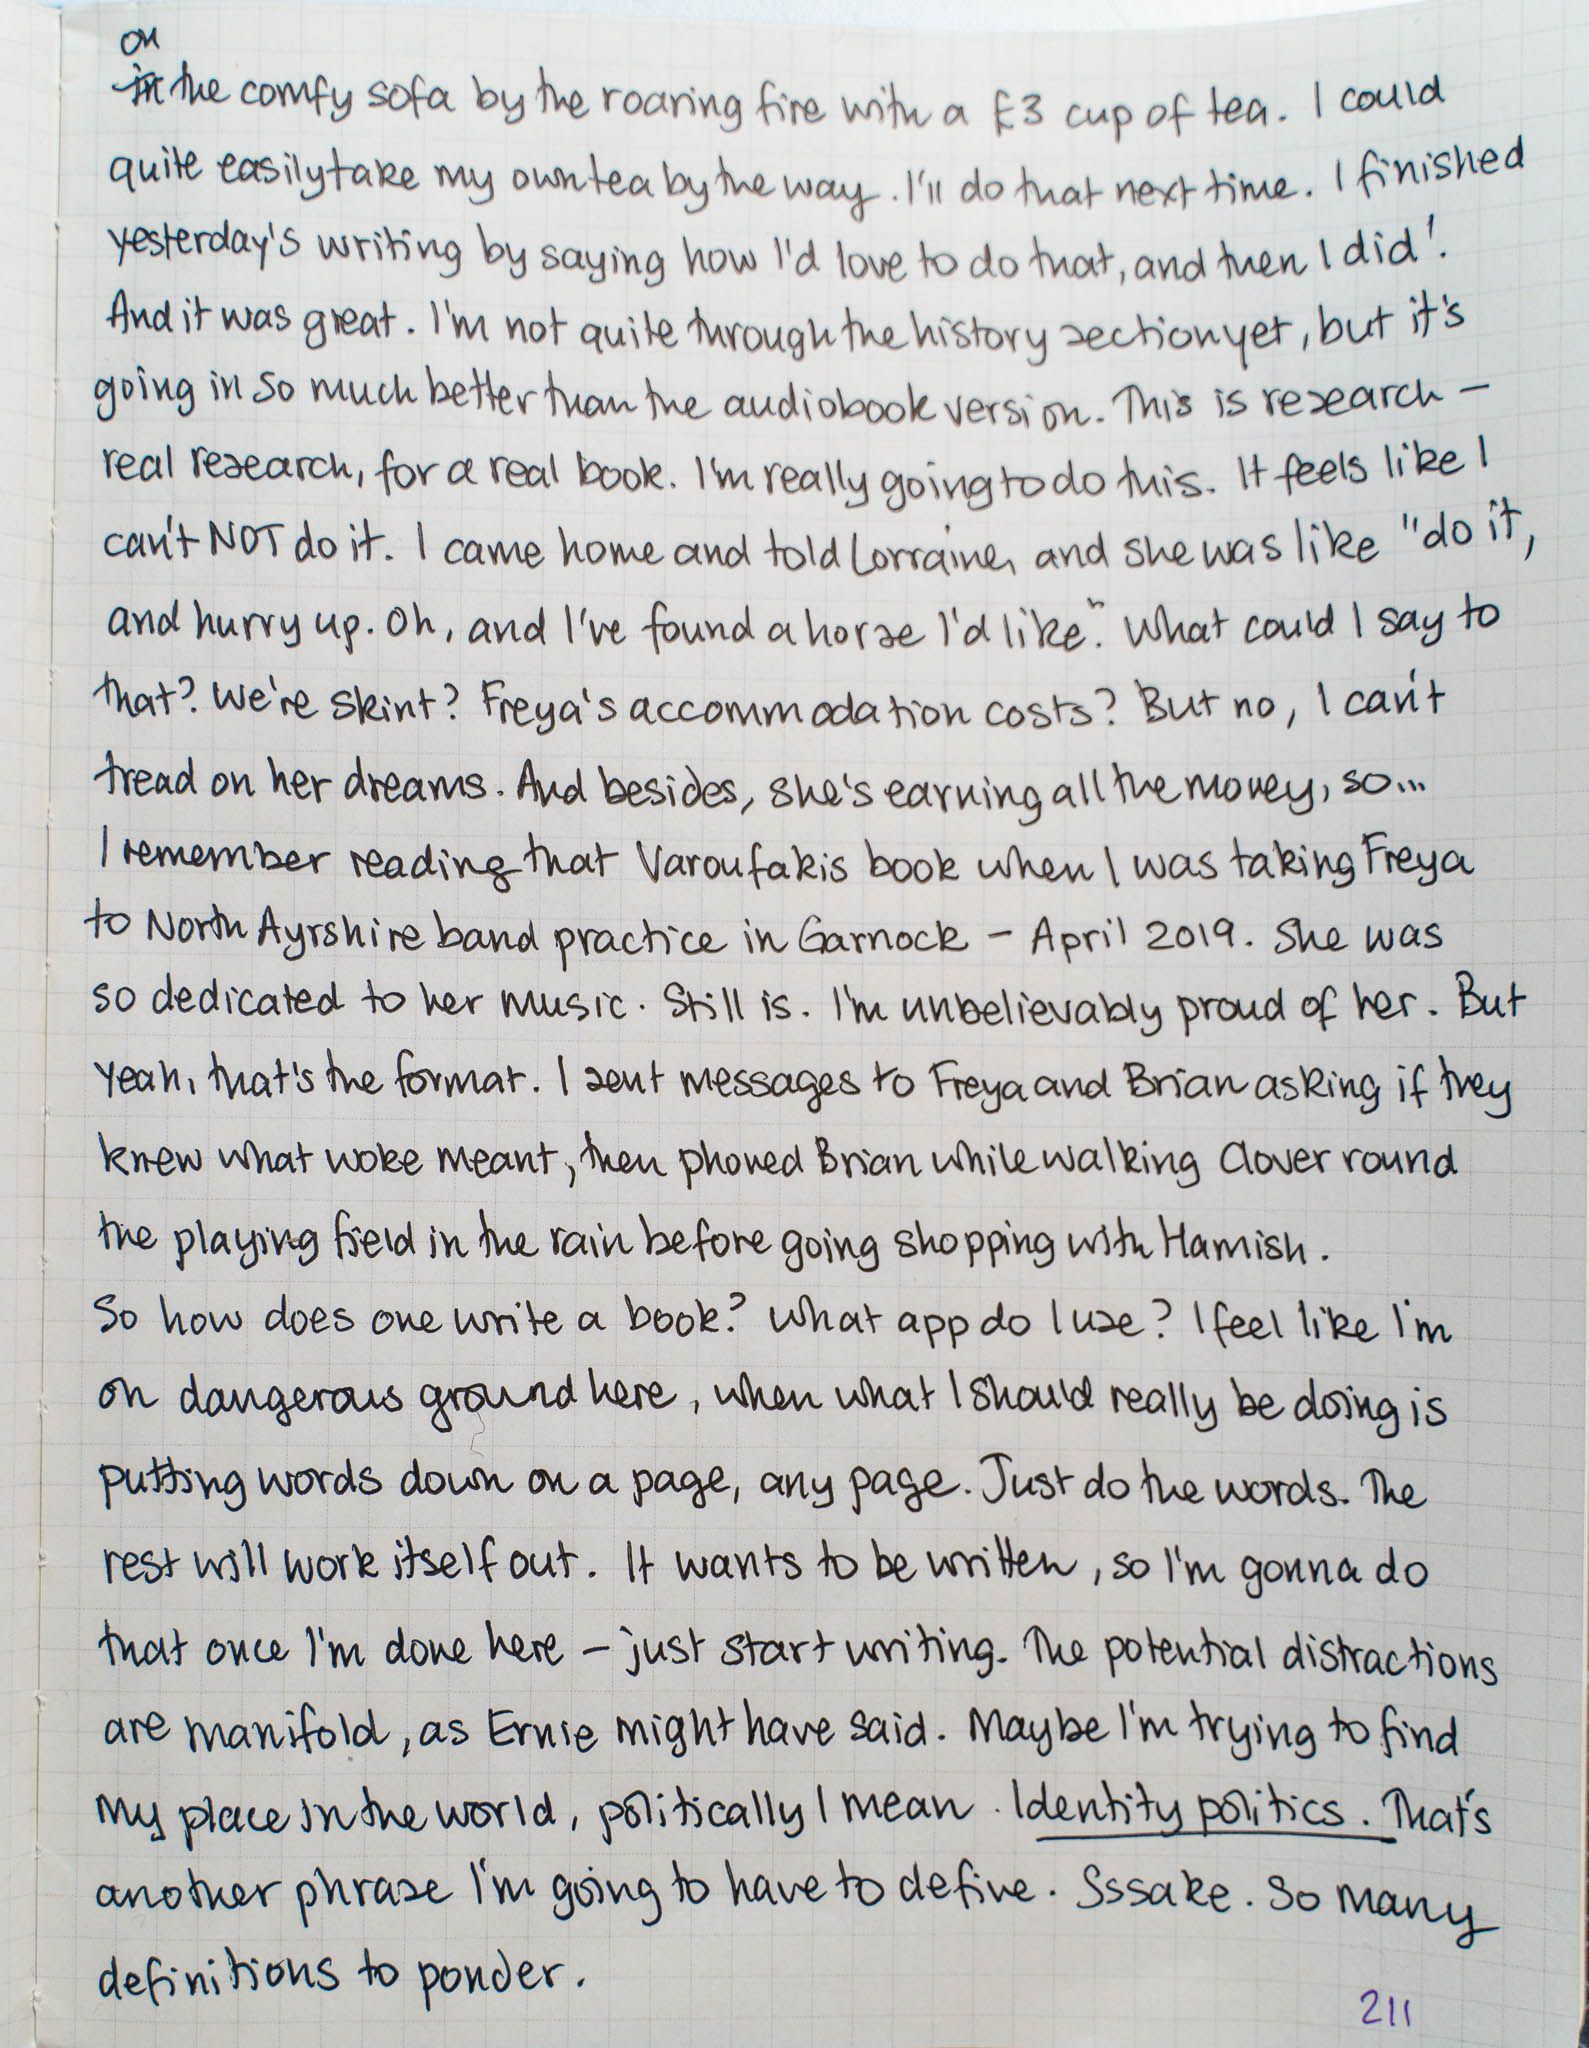 on
in the comfy sofa by the roaring fire with a £3 cup of tea. I could
quite easily take my own tea by the way. I'll do that next time. I finished
yesterday's writing by saying how I'd love to do that, and then I did!
And it was great. I'm not quite through the history section yet, but it's
going in so much better than the audiobook version. This is research –
real research, for a real book. I'm really going to do this. It feels like I
can't NOT do it. I came home and told Lorraine, and she was like "do it,
and hurry up. Oh, and I've found a horse I'd like." What could I say to
that? We're skint? Freya's accommodation costs? But no, I can't
tread on her dreams. And besides, she's earning all the money, so...
I remember reading that Varoufakis book when I was taking Freya
to North Ayrshire band practice in Garnock – April 2019. She was
so dedicated to her music. Still is. I'm unbelievably proud of her. But
yeah, that's the format. I sent messages to Freya and Brian asking if they
knew what woke meant, then phoned Brian while walking Clover round
the playing field in the rain before going shopping with Hamish.
So how does one write a book? What app do I use? I feel like I'm
on dangerous ground here, when what I should really be doing is
putting words down on a page, any page. Just do the words. The
rest will work itself out. It wants to be written, so I'm gonna do
that once I'm done here – just start writing. The potential distractions
are manifold, as Ernie might have said. Maybe I'm trying to find
my place in the world, politically I mean. Identity politics. That's
another phrase I'm going to have to define. Sssake. So many
definitions to ponder.
211